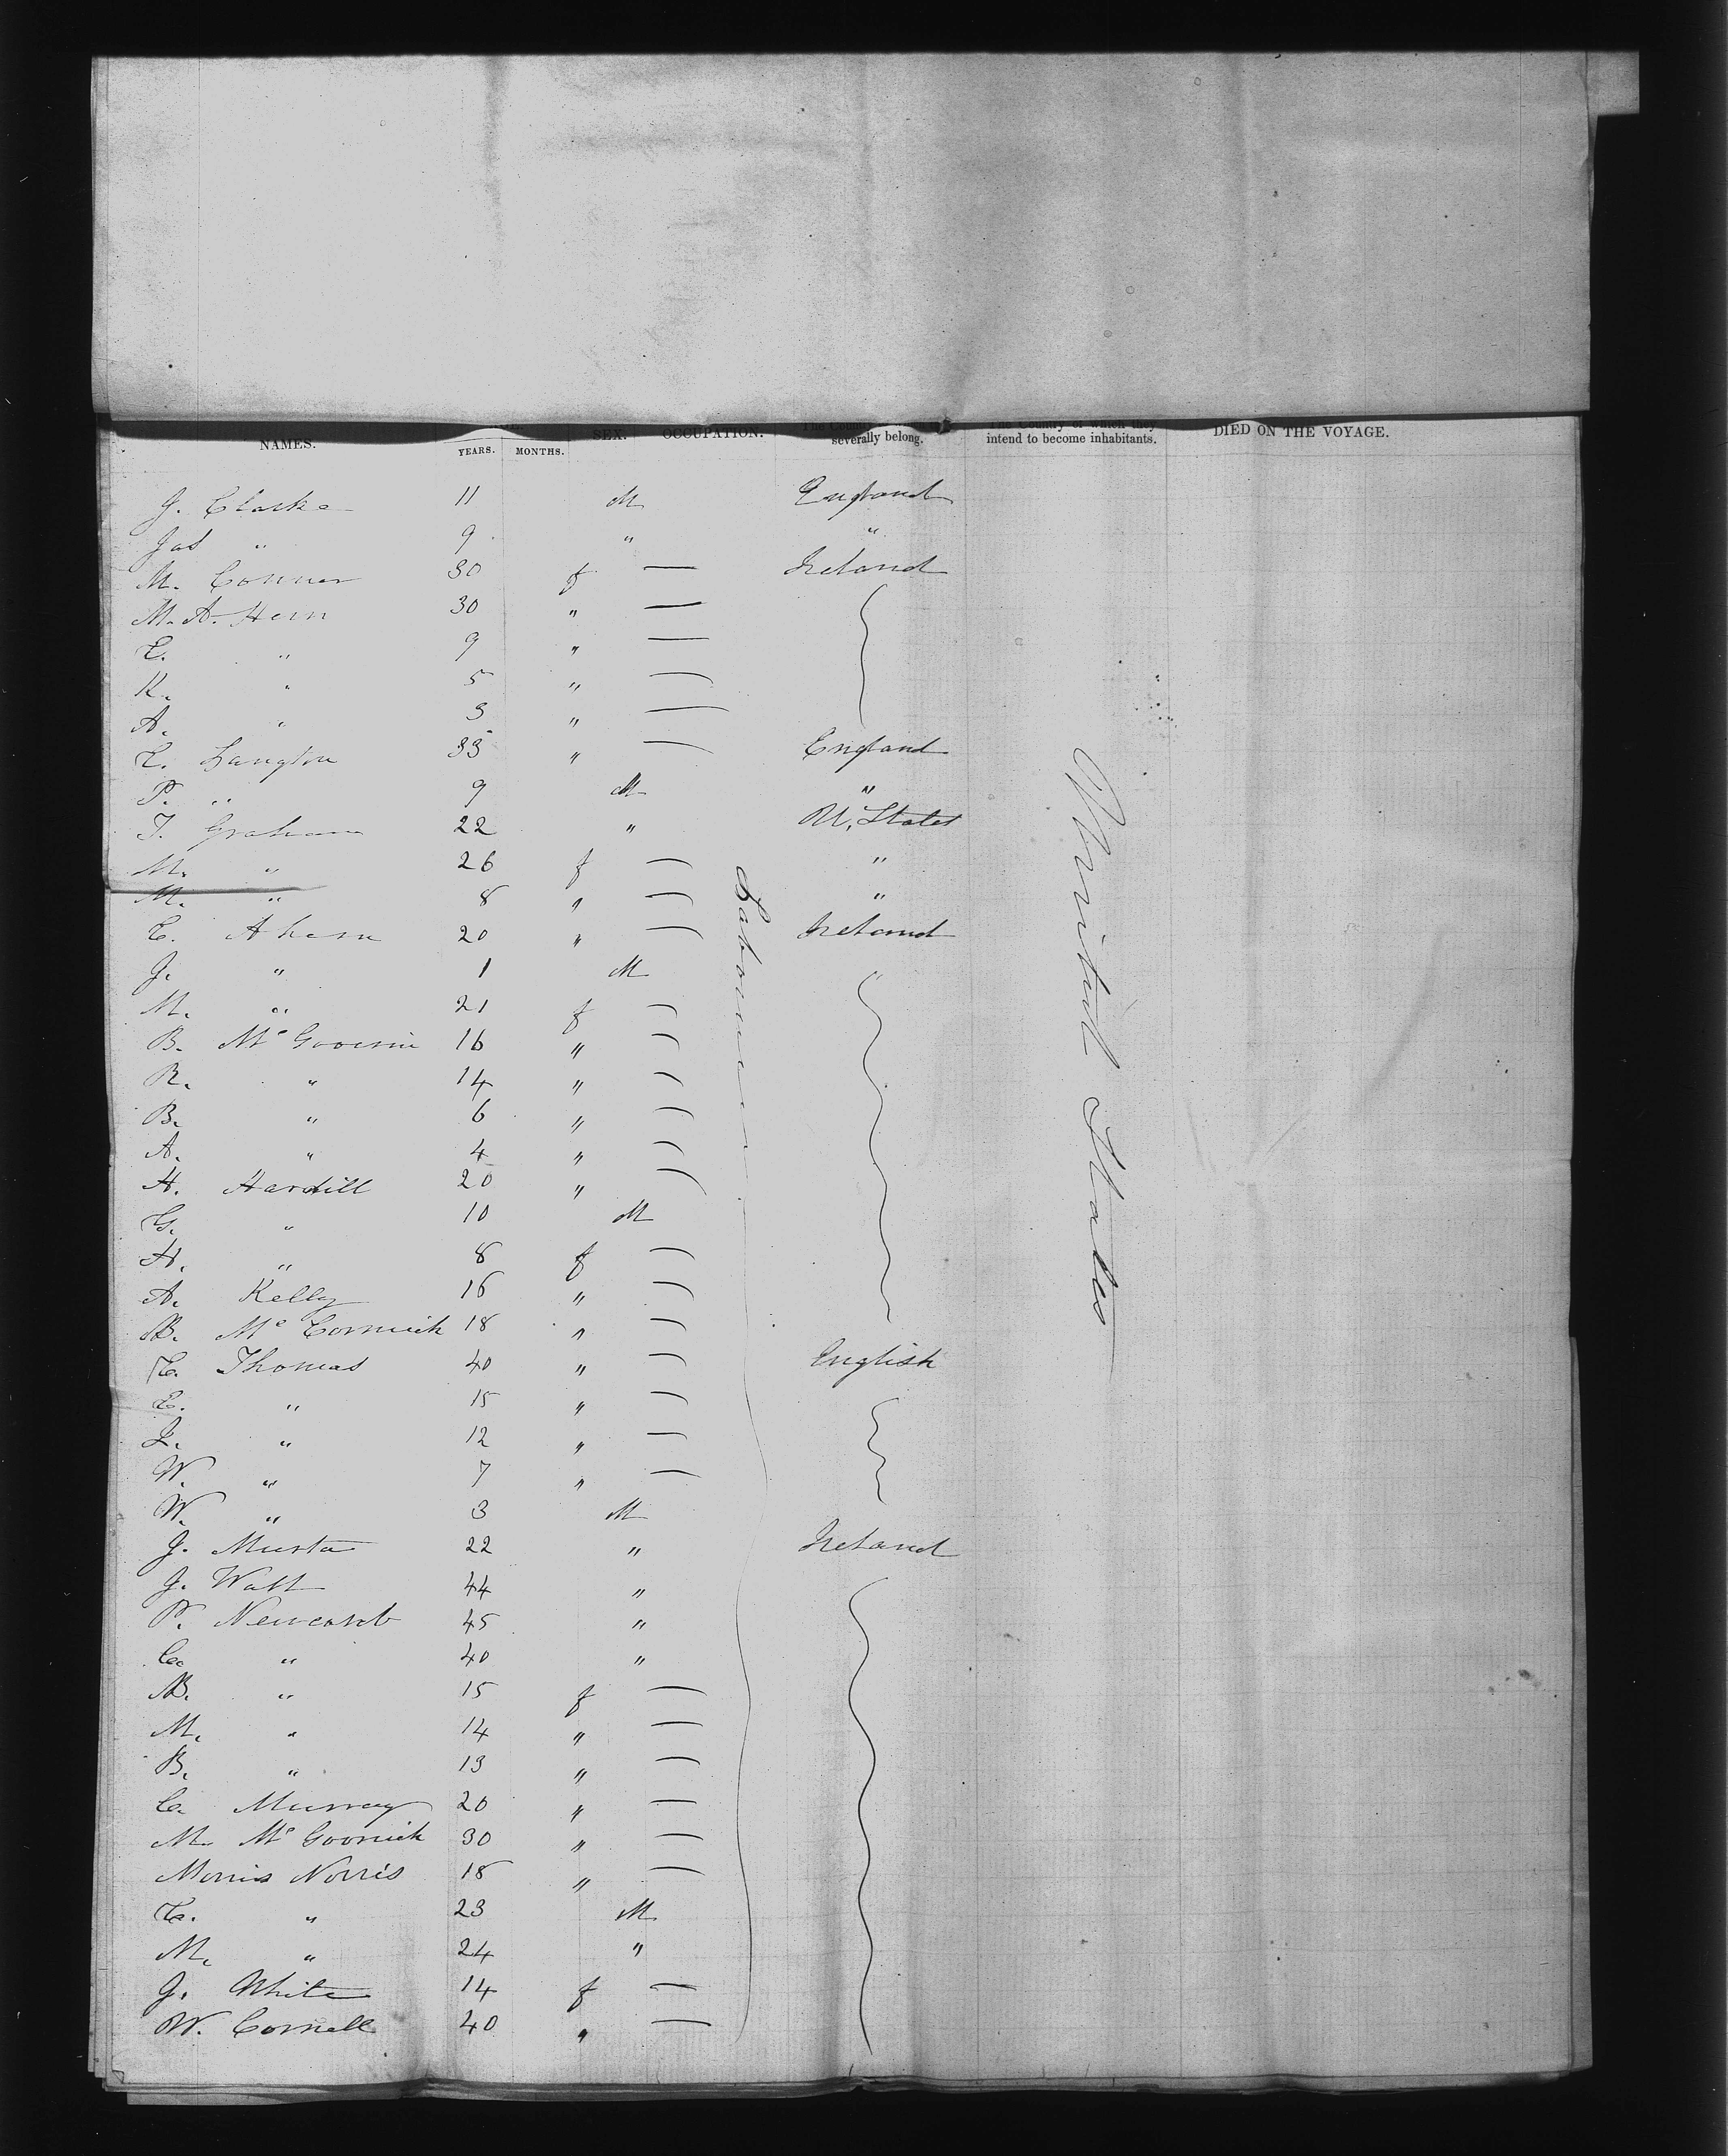 NAMES. YEARS. MONTHS. SEX. OCCUPATION. severally belong. The Country of which they intend to become inhabitants. DIED ON THE VOYAGE.
J. Clarke 11 M England
Jas " 9 " "
M. Conner 30 f — Ireland
M. A. Hern 30 " —
E. " 9 " —
K. " 5 " —
A. " 3 " —
E. Langton 35 " — England
P. " 9 M "
T. Graham 22 " U. States
M. " 26 f — "
M. " 8 " — "
E. Ahern 20 " — Ireland
J. " 1 M
M. " 21 f —
B. Mc Govern 16 " —
R. " 14 " —
B. " 6 " —
A. " 4 " —
H. Hardill 20 " —
G. " 10 M
H. " 8 f —
A. Kelly 16 " —
B. Mc Cormick 18 " —
E. Thomas 40 " — English
E. " 15 " —
L. " 12 " —
W. " 7 " —
W. " 3 M
J. Murta 22 " Ireland
J. Watt 44 "
P. Newcomb 45 "
C. " 40 "
B. " 15 f —
M. " 14 " —
B. " 13 " —
C. Murray 20 " —
M. Mc Goornick 30 " —
Morris Norris 18 " —
E. " 23 M
M. " 24 "
J. White 14 f —
W. Cornell 40 " —
Labourers
United States